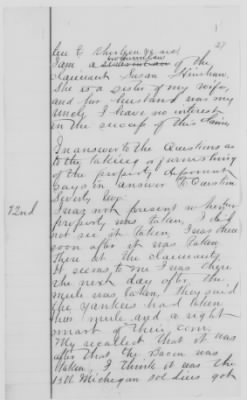 27
I am a brother in law of the
claimant Susan Hinshaw.
She is a sister of my wife,
and her husband was my
Uncle. I have no interest
in the success of this claim.
In answer to the Questions as
to the taking or furnishing
of the property deponent
says in answer to Question
Seventy two.
72nd
I was not present when her
property was taken, I did
not see it taken, I was there
soon after it was taken
There at the claimants.
It seems to me I was there
the next day after the
mule was taken, they said
the Yankees had taken
her mule and a right
smart of their corn.
My recollect that it was
after that the Bacon was
taken, I think it was the
13th Michigan soldiers got